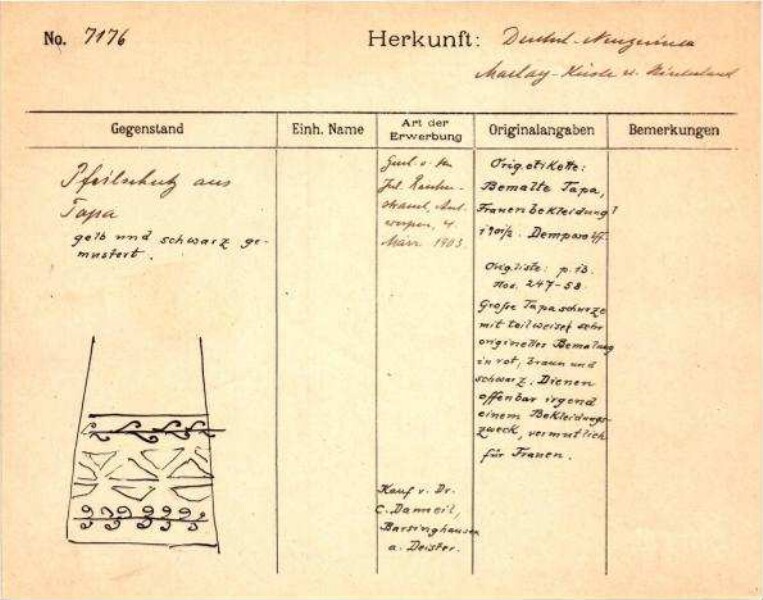 No. 7176
Herkunft: Deutsch-Neuguinea
Maclay-Küste u. Hinterland
Gegenstand
Einh. Name
Art der
Erwerbung
Originalangaben
Bemerkungen
Pfeilschutz aus
Tapa
gelb und schwarz ge-
mustert.
Jul. Konietz-
Antwerpen, 4.
März 1903
Orig. etikette:
Bemalte Tapa,
Frauenbekleidung?
Dempwolff.
Orig. liste: p. 13.
Nos. 247-58.
Große Tapaschurze
mit teilweise sehr
origineller Bemalung
in rot, braun und
schwarz. Dienen
offenbar irgend
einem Bekleidungs-
zweck, vermutlich
für Frauen.
Kauf v. Dr.
C. Damneil,
Barsinghausen
a. Deister.